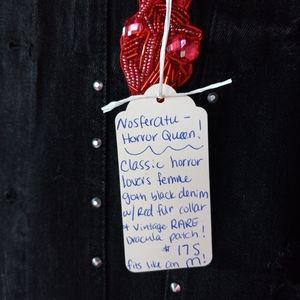 Nosferatu -
Horror Queen!
Classic horror
lovers female
goth black denim
w/ Red fur collar
+ Vintage RARE
Dracula patch!
$ 175
fits like an M!